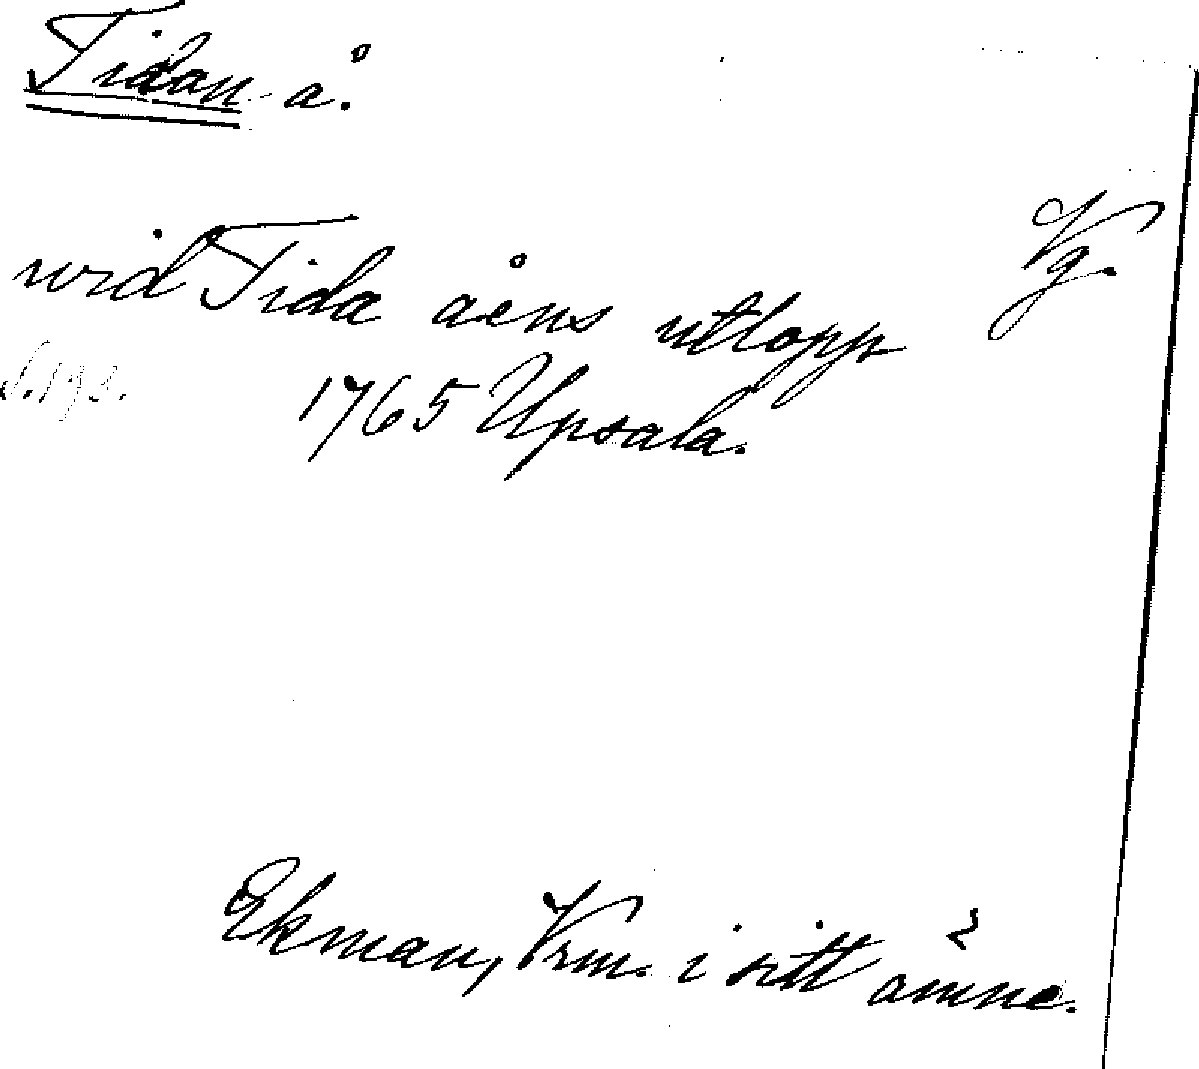 Tidan å.
Vg.
wid Tida åens utlopp
1765 Upsala.
Ekman, Vrm. i sitt ämne.